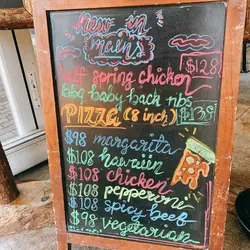 new in
mains
$128
half spring chicken
bbq baby back ribs
$138
PIZZA (8 inch)
$98 margarita
$108 hawaiien
$108 chicken
$108 pepperoni
$108 spicy beef
$98 vegetarian